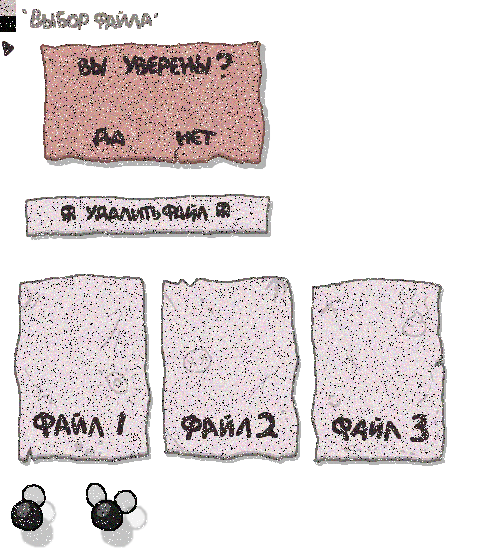 'ВЫБОР ФАЙЛА'
ВЫ УВЕРЕНЫ?
ДА НЕТ
УДАЛИТЬ ФАЙЛ
ФАЙЛ 1 ФАЙЛ 2 ФАЙЛ 3